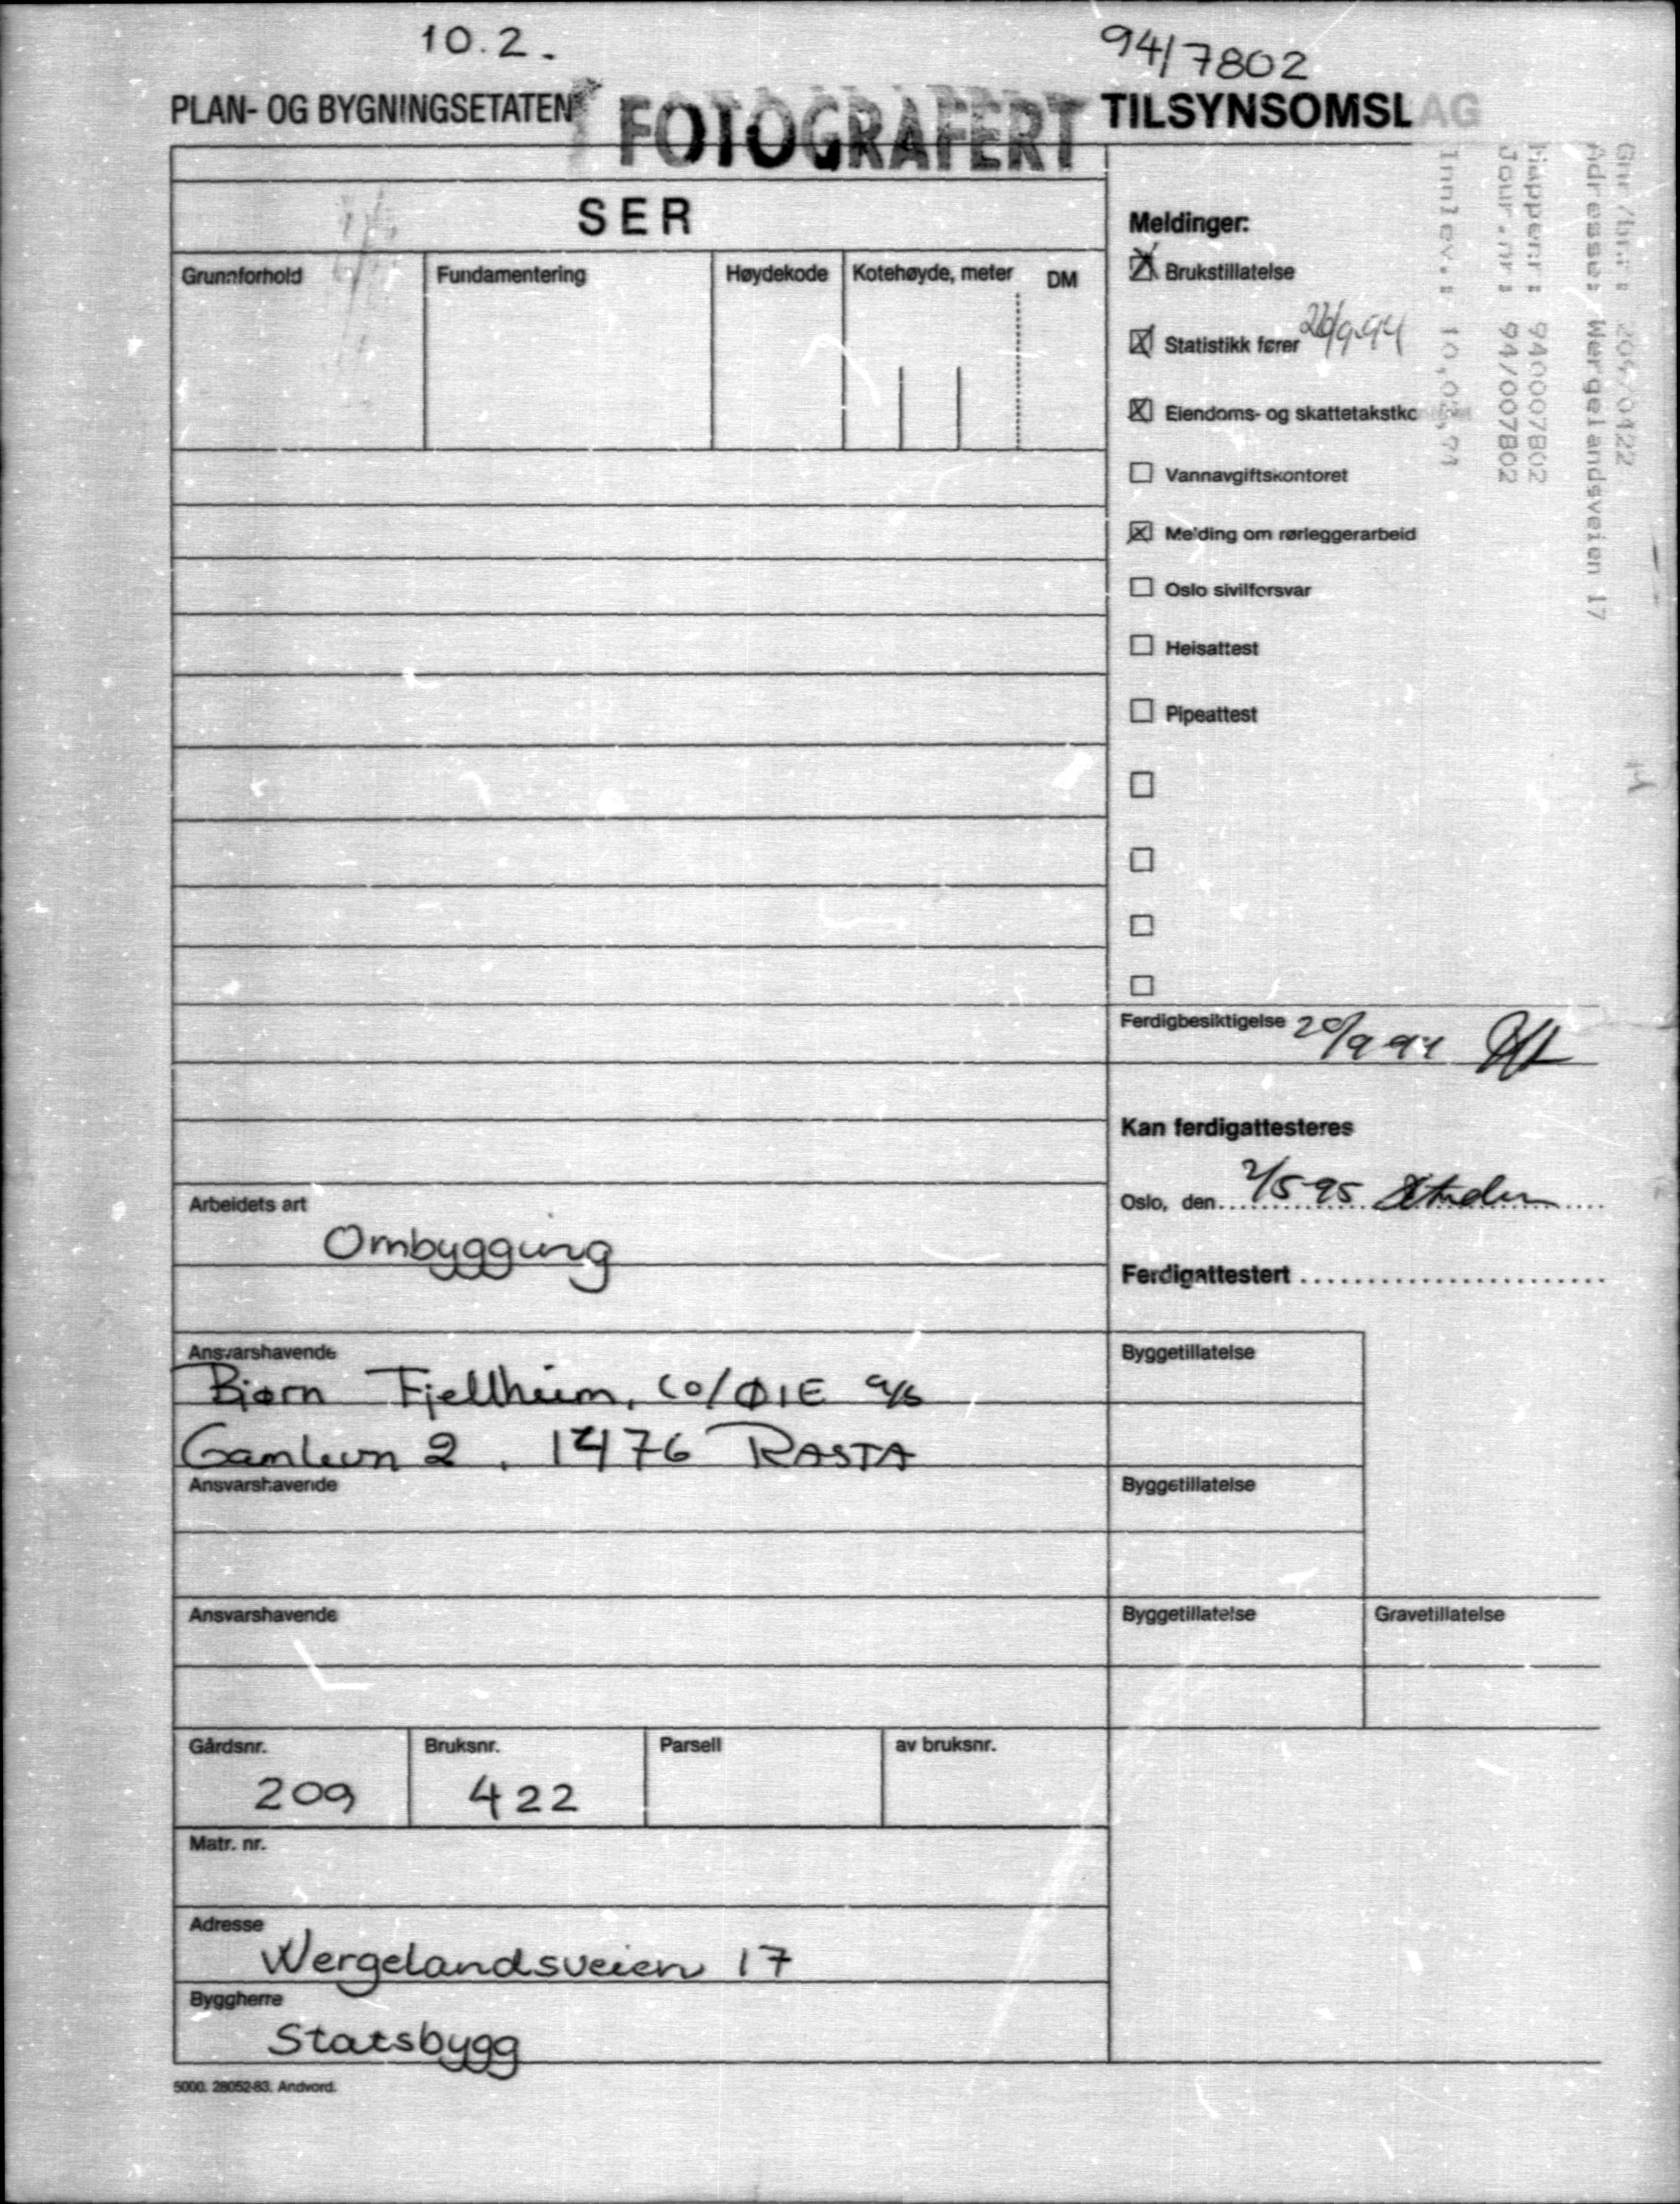 10.2.
94/7802
PLAN- OG BYGNINGSETATEN
FOTOGRAFERT
TILSYNSOMSLAG
SER
Grunnforhold
Fundamentering
Høydekode
Kotehøyde, meter
DM
Meldinger:
Brukstillatelse
Statistikk fører 26/9-94
Eiendoms- og skattetakstko
Vannavgiftskontoret
Melding om rørleggerarbeid
Oslo sivilforsvar
Heisattest
Pipeattest
Gnr/br.: 209/0422
Adresse: Wergelandsveien 17
Mappenr: 940007802
Jour.nr: 94/007802
Innlev.: 10,02,94
Ferdigbesiktigelse 20/9 94
Kan ferdigattesteres
Oslo, den 2/5-95
Ferdigattestert
Arbeidets art
Ombygging
Ansvarshavende
Bjørn Fjellheim, co/ØIE a/s
Gamlevn 2, 1476 RASTA
Byggetillatelse
Ansvarshavende
Byggetillatelse
Ansvarshavende
Byggetillatelse
Gravetillatelse
Gårdsnr.
209
Bruksnr.
422
Parsell
av bruksnr.
Matr. nr.
Adresse
Wergelandsveien 17
Byggherre
Statsbygg
5000. 28052-83. Andvord.